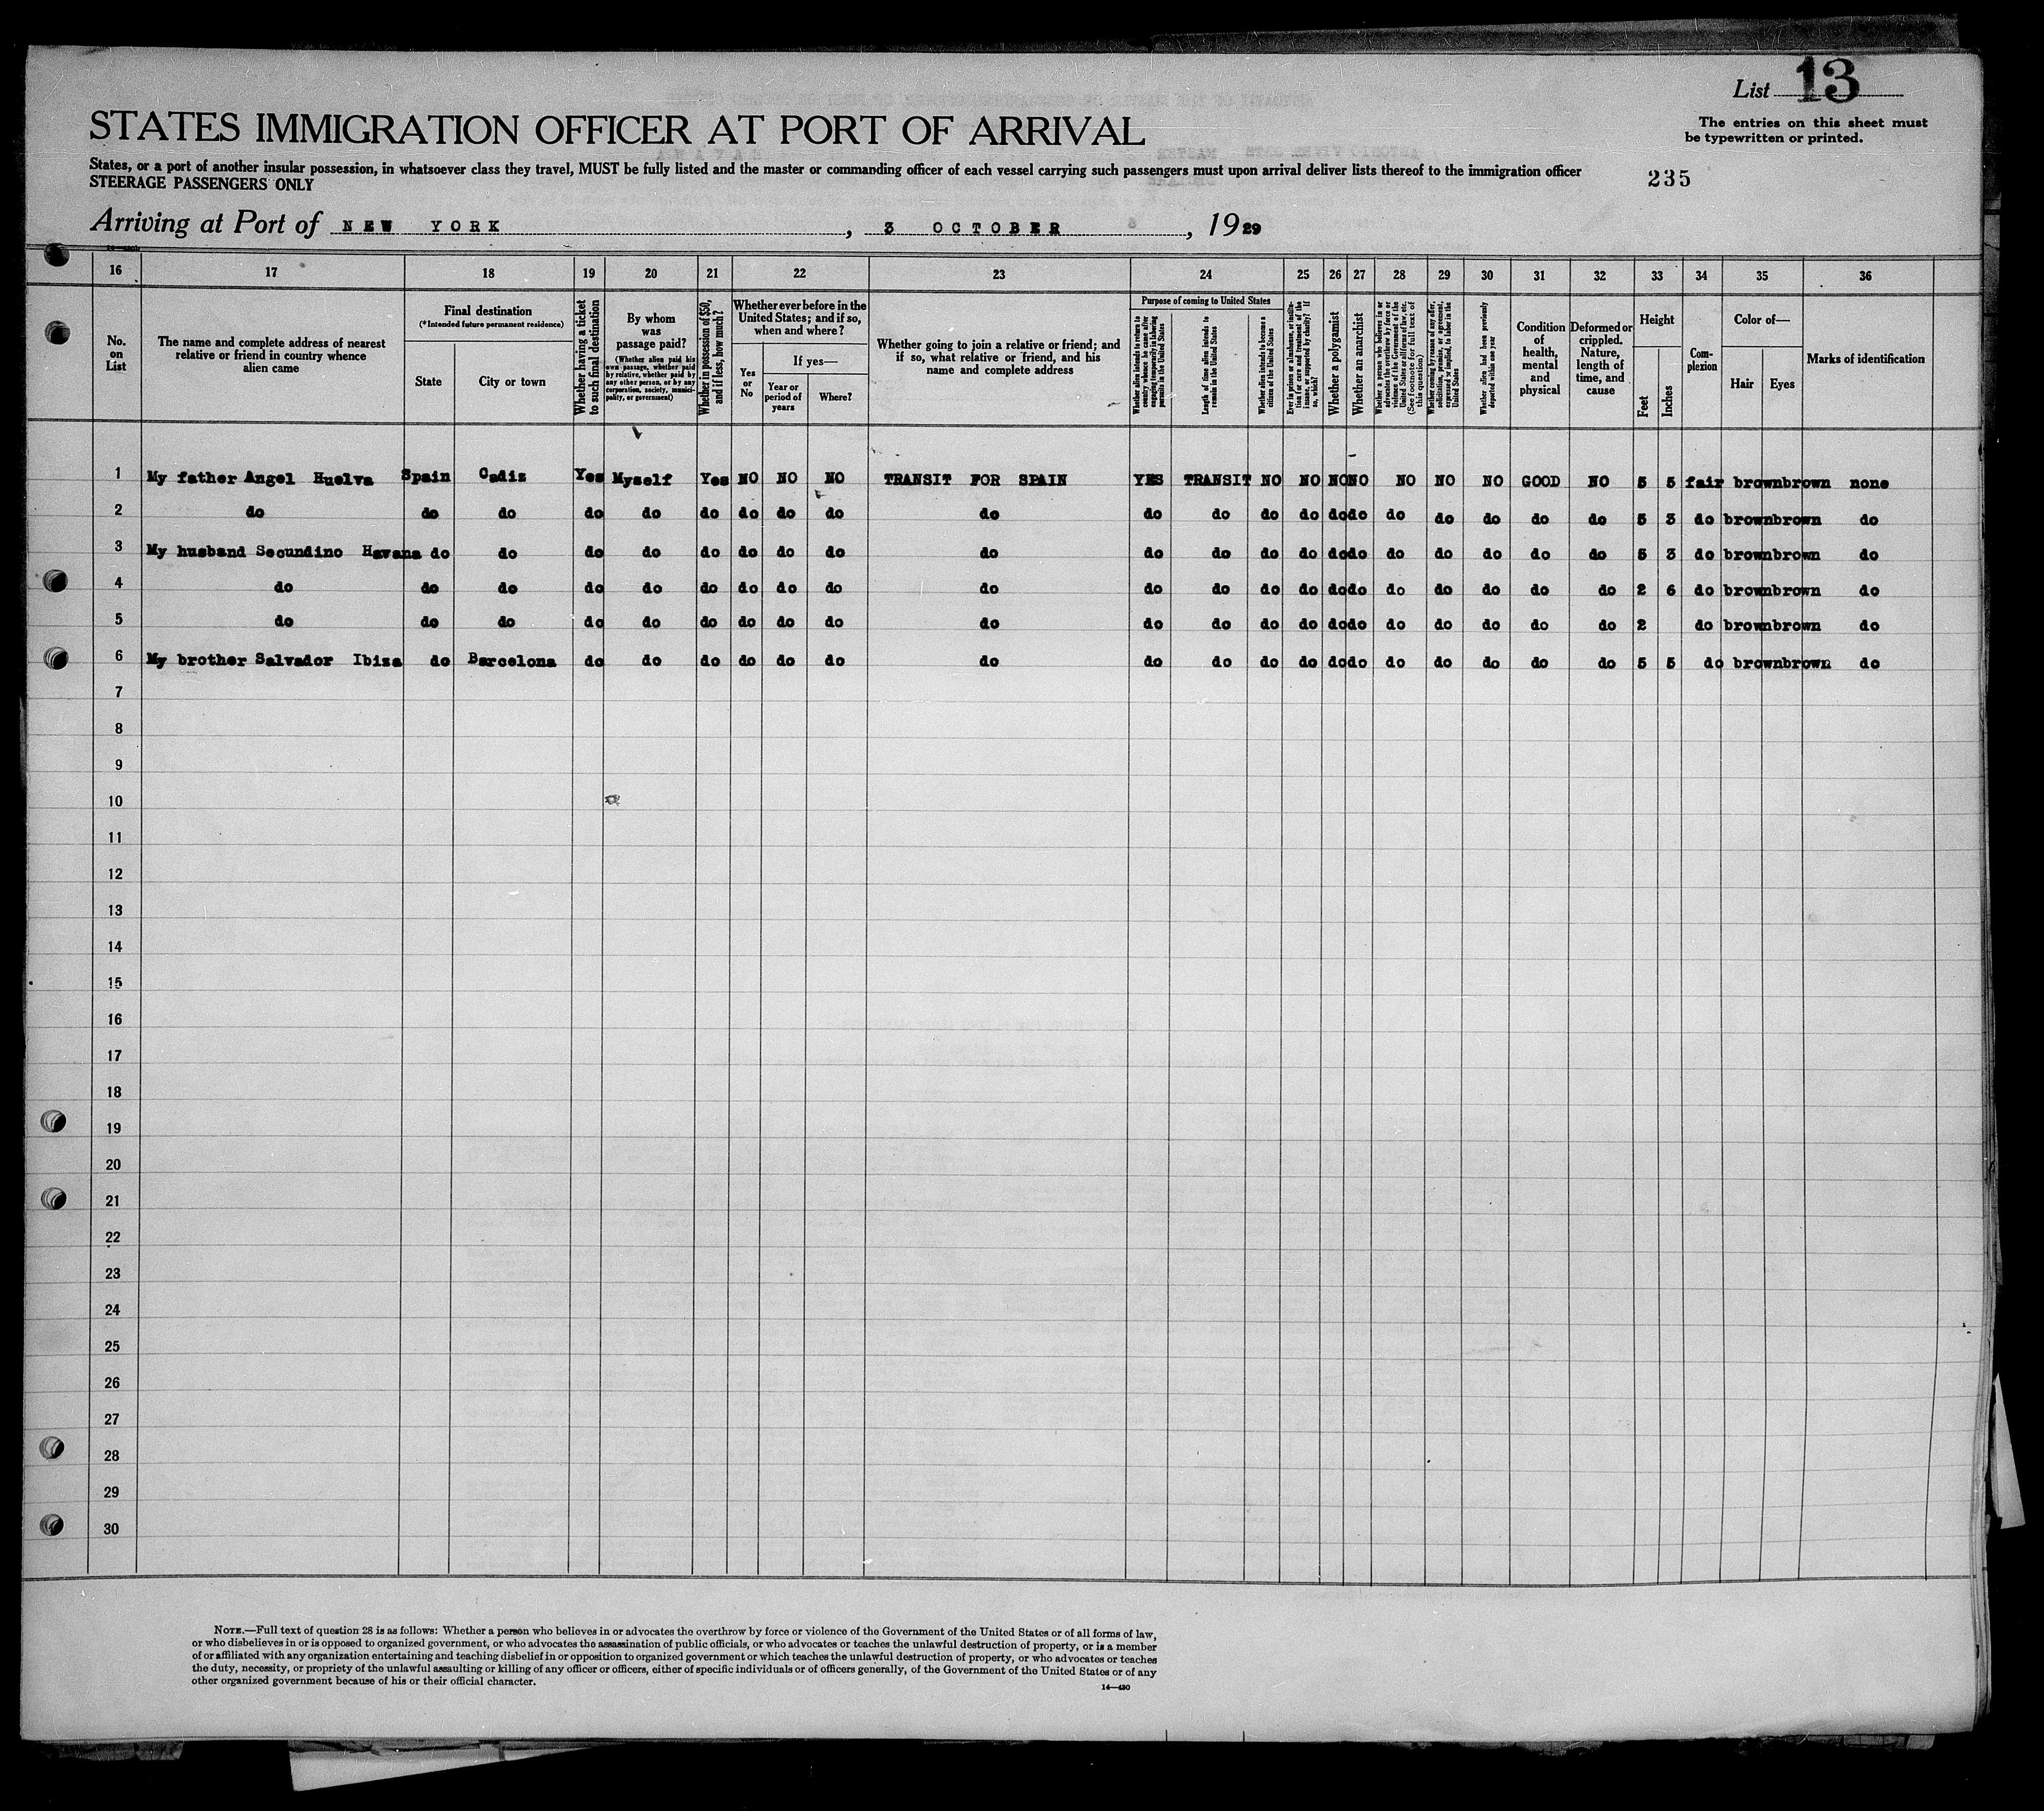 List 13
STATES IMMIGRATION OFFICER AT PORT OF ARRIVAL
The entries on this sheet must
be typewritten or printed.
States, or a port of another insular possession, in whatsoever class they travel, MUST be fully listed and the master or commanding officer of each vessel carrying such passengers must upon arrival deliver lists thereof to the immigration officer
STEERAGE PASSENGERS ONLY
235
Arriving at Port of NEW YORK, 3 OCTOBER, 1929
16 17 18 19 20 21 22 23 24 25 26 27 28 29 30 31 32 33 34 35 36
No.
on
List
The name and complete address of nearest
relative or friend in country whence
alien came
Final destination
(*Intended future permanent residence)
State
City or town
Whether having a ticket
to such final destination
By whom
was
passage paid?
(Whether alien paid his
own passage, whether paid
by relative, whether paid by
any other person, or by any
corporation, society, munici-
pality, or government)
Whether in possession of $50,
and if less, how much?
Whether ever before in the
United States; and if so,
when and where?
Yes
or
No
If yes—
Year or
period of
years
Where?
Whether going to join a relative or friend; and
if so, what relative or friend, and his
name and complete address
Purpose of coming to United States
Whether alien intends to return to
country whence he came after
engaging temporarily in laboring
pursuits in the United States
Length of time alien intends to
remain in the United States
Whether alien intends to become a
citizen of the United States
Ever in prison or almshouse, or institu-
tion for care and treatment of the
insane, or supported by charity? If
so, which?
Whether a polygamist
Whether an anarchist
Whether a person who believes in or
advocates the overthrow by force or
violence of the Government of the
United States or all forms of law, etc.
(See footnote for full text of
this question)
Whether coming by reason of any offer,
solicitation, promise, or agreement,
expressed or implied, to labor in the
United States
Whether alien had been previously
deported within one year
Condition
of
health,
mental
and
physical
Deformed or
crippled.
Nature,
length of
time, and
cause
Height
Feet
Inches
Com-
plexion
Color of—
Hair
Eyes
Marks of identification
1 My father Angel Huelva Spain Cadiz Yes Myself Yes NO NO NO TRANSIT FOR SPAIN YES TRANSIT NO NO NO NO NO NO NO GOOD NO 5 5 fair brown brown none
2 do do do do do do do do do do do do do do do do do do do do do 5 3 do brown brown do
3 My husband Secundino Havana do do do do do do do do do do do do do do do do do do do do 5 3 do brown brown do
4 do do do do do do do do do do do do do do do do do do do do do 2 6 do brown brown do
5 do do do do do do do do do do do do do do do do do do do do do 2 do brown brown do
6 My brother Salvador Ibiza do Barcelona do do do do do do do do do do do do do do do do do do 5 5 do brown brown do
7
8
9
10
11
12
13
14
15
16
17
18
19
20
21
22
23
24
25
26
27
28
29
30
NOTE.—Full text of question 28 is as follows: Whether a person who believes in or advocates the overthrow by force or violence of the Government of the United States or of all forms of law,
or who disbelieves in or is opposed to organized government, or who advocates the assassination of public officials, or who advocates or teaches the unlawful destruction of property, or is a member
of or affiliated with any organization entertaining and teaching disbelief in or opposition to organized government or which teaches the unlawful destruction of property, or who advocates or teaches
the duty, necessity, or propriety of the unlawful assaulting or killing of any officer or officers, either of specific individuals or of officers generally, of the Government of the United States or of any
other organized government because of his or their official character.
14—430